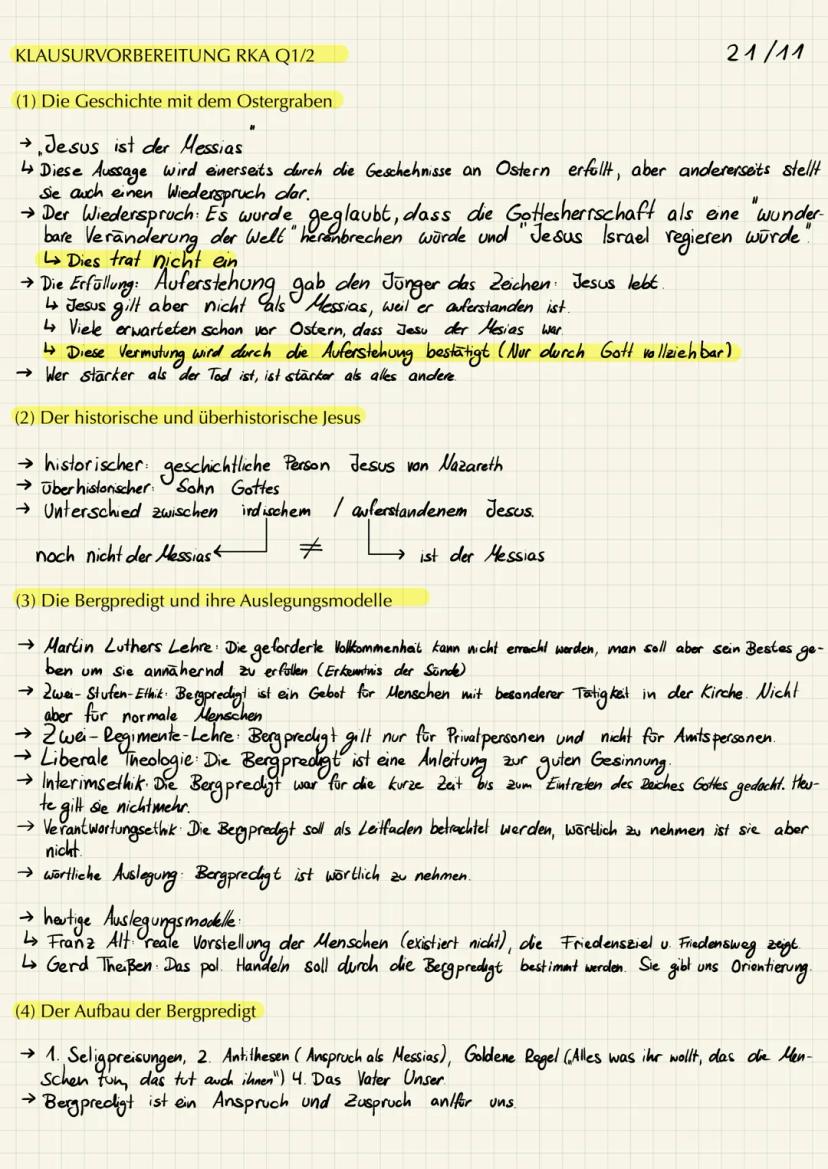 KLAUSURVORBEREITUNG RKA Q1/2
21/11
(1) Die Geschichte mit dem Ostergraben
→ „Jesus ist der Messias"
↳ Diese Aussage wird einerseits durch die Geschehnisse an Ostern erfüllt, aber andererseits stellt
sie auch einen Wiederspruch dar.
→ Der Wiederspruch: Es wurde geglaubt, dass die Gottesherrschaft als eine "wunder-
bare Veränderung der Welt" heranbrechen würde und "Jesus Israel regieren würde".
↳ Dies trat nicht ein
→ Die Erfüllung: Auferstehung gab den Jünger das Zeichen: Jesus lebt.
↳ Jesus gilt aber nicht als Messias, weil er auferstanden ist.
↳ Viele erwarteten schon vor Ostern, dass Jesu der Mesias war.
↳ Diese Vermutung wird durch die Auferstehung bestätigt (Nur durch Gott vollziehbar)
→ Wer stärker als der Tod ist, ist stärker als alles andere.
(2) Der historische und überhistorische Jesus
→ historischer: geschichtliche Person Jesus von Nazareth
→ überhistorischer: Sohn Gottes
→ Unterschied zwischen irdischem / auferstandenem Jesus.
noch nicht der Messias ← ≠ → ist der Messias
(3) Die Bergpredigt und ihre Auslegungsmodelle
→ Martin Luthers Lehre: Die geforderte Vollkommenheit kann nicht erreicht werden, man soll aber sein Bestes ge-
ben um sie annähernd zu erfüllen (Erkenntnis der Sünde)
→ Zwei-Stufen-Ethik: Bergpredigt ist ein Gebot für Menschen mit besonderer Tätigkeit in der Kirche. Nicht
aber für normale Menschen
→ Zwei-Regimente-Lehre: Bergpredigt gilt nur für Privatpersonen und nicht für Amtspersonen.
→ Liberale Theologie: Die Bergpredigt ist eine Anleitung zur guten Gesinnung.
→ Interimsethik: Die Bergpredigt war für die kurze Zeit bis zum Eintreten des Reiches Gottes gedacht. Heu-
te gilt sie nichtmehr.
→ Verantwortungsethik: Die Bergpredigt soll als Leitfaden betrachtet werden, wörtlich zu nehmen ist sie aber
nicht.
→ wörtliche Auslegung: Bergpredigt ist wörtlich zu nehmen.
→ heutige Auslegungsmodelle:
↳ Franz Alt: reale Vorstellung der Menschen (existiert nicht), die Friedensziel u. Friedensweg zeigt.
↳ Gerd Theißen: Das pol. Handeln soll durch die Bergpredigt bestimmt werden. Sie gibt uns Orientierung.
(4) Der Aufbau der Bergpredigt
→ 1. Seligpreisungen, 2. Antithesen (Anspruch als Messias), Goldene Regel („Alles was ihr wollt, das die Men-
schen tun, das tut auch ihnen") 4. Das Vater Unser.
→ Bergpredigt ist ein Anspruch und Zuspruch an/für uns.